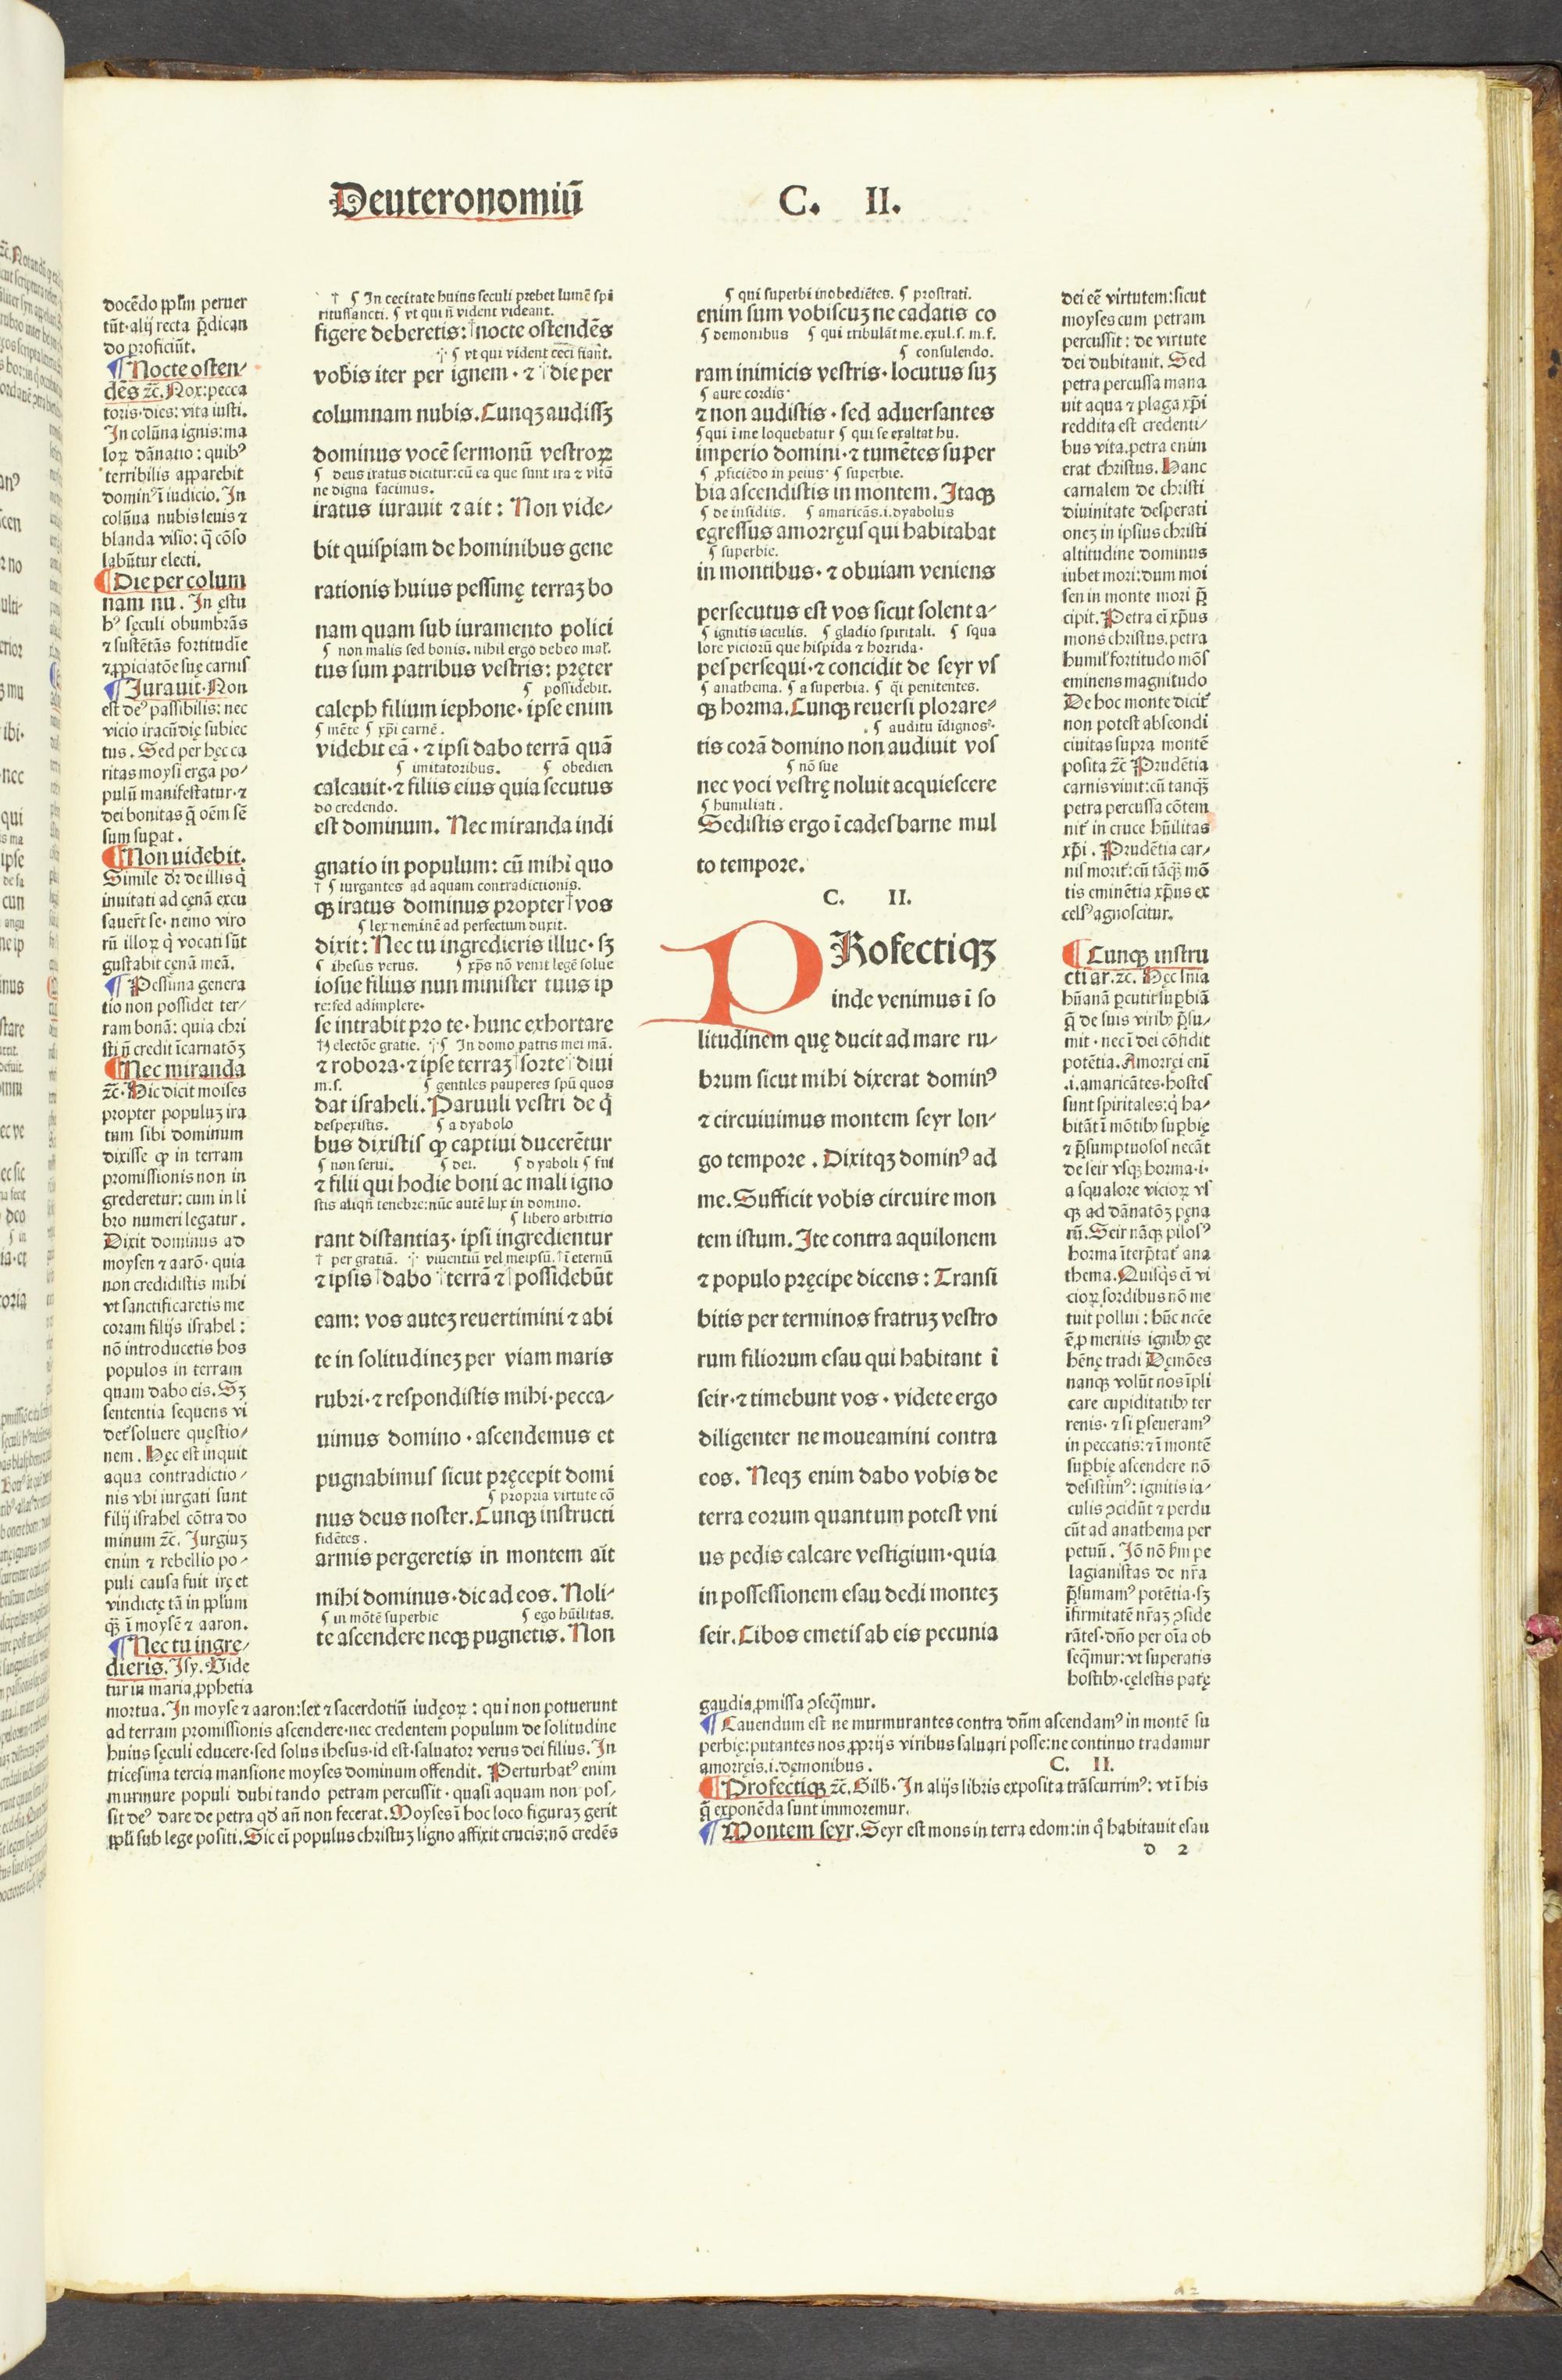 Deuteronomiū C. II.
docēdo ppl̄m peruer
tūt·alij recta p̄dican
do proficiūt.
¶ Nocte osten/
dēs ⁊c̄. Nox: pecca
toris·dies: vita iusti.
In colūna ignis: ma
loꝝ dānatio: quibꝰ
terribilis apparebit
dominꝰ ī iudicio. In
colūna nubis leuis ⁊
blanda visio: q̄ cōso
labūtur electi.
¶ Die per colum
nam nu. In ęstu
bꝰ sęculi obumbrās
⁊ sustētās fortitudīe
⁊ ꝓpiciatōe suę carnis
¶ Iurauit·Non
est deꝰ passibilis: nec
vicio iracūdię subiec
tus. Sed per hęc ca
ritas moysi erga po/
pulū manifestatur·⁊
dei bonitas q̄ oēm sē
sum supat.
¶ Non uidebit.
Simile dr̄ de illis q̇
inuitati ad cęnā excu
sauer̄t se·nemo viro
rū illoꝝ q̇ vocati sūt
gustabit cęnā meā.
¶ Pessima genera
tio non possidet ter/
ram bonā: quia chri
sti n̄ credit īcarnatōꝫ
¶ Nec miranda
⁊c̄. Hic dicit moises
propter populuꝫ ira
tum sibi dominum
dixisse ꝙ in terram
promissionis non in
grederetur: cum in li
bro numeri legatur.
Dixit dominus ad
moysen ⁊ aarō·quia
non credidistis mihi
vt sanctificaretis me
coram filijs israhel:
nō introducetis hos
populos in terram
quam dabo eis. Sꝫ
sententia sequens vi
det̄ soluere quęstio/
nem. Hęc est inquit
aqua contradictio/
nis vbi iurgati sunt
filij israhel cōtra do
minum ⁊c̄. Iurgiuꝫ
enim ⁊ rebellio po/
puli causa fuit irę et
vindictę tā in ppl̄um
q̄ȝ ī moysē ⁊ aaron.
¶ Nec tu ingre/
dieris. Isy. Vide
tur in maria ꝓphetia
mortua. In moyse ⁊ aaron: lex ⁊ sacerdotiū iudęoꝝ: qui non potuerunt
ad terram promissionis ascendere·nec credentem populum de solitudine
huius sęculi educere·sed solus ihesus·id est·saluator verus dei filius. In
tricesima tercia mansione moyses dominum offendit. Perturbatꝰ enim
murmure populi dubitando petram percussit·quasi aquam non pos/
sit deꝰ dare de petra qd̄ an̄ non fecerat. Moyses ī hoc loco figuraꝫ gerit
ppl̄i sub lege positi. Sic ei populus christuꝫ ligno affixit crucis: nō credēs
† ¶ In cecitate huius seculi prebet lumē spi
ritussancti. ¶ vt qui n̄ vident videant.
figere deberetis: nocte ostendēs
·¦· ¶ vt qui vident ceci fiant.
vobis iter per ignem·⁊ die per
columnam nubis. Cunqꝫ audissꝫ
dominus vocē sermonū vestroꝝ
¶ deus iratus dicitur: cū ea que sunt ira ⁊ vltō
ne digna facimus.
iratus iurauit ⁊ ait: Non vide/
bit quispiam de hominibus gene
rationis huius pessimę terraꝫ bo
nam quam sub iuramento polici
¶ non malis sed bonis. nihil ergo debeo mal̄.
tus sum patribus vestris: pręter
¶ possidebit.
caleph filium iephone·ipse enim
¶ mēte ¶ xp̄i carnē.
videbit eā·⁊ ipsi dabo terrā quā
¶ imitatoribus. ¶ obedien
calcauit·⁊ filiis eius quia secutus
do credendo.
est dominum. Nec miranda indi
gnatio in populum: cū mihi quo
† ¶ iurgantes ad aquam contradictionis.
qꝫ iratus dominus propter † vos
¶ lex neminē ad perfectum duxit.
dixit: Nec tu ingredieris illuc·sꝫ
¶ ihesus verus. ¶ xp̄s nō venit legē solue
iosue filius nun minister tuus ip
re: sed adimplere.
se intrabit pro te·hunc exhortare
†¦ electōe gratie. ·¦· ¶ In domo patris mei mā.
⁊ robora·⁊ ipse terraꝫ sorte diui
m.s. ¶ gentiles pauperes spū quos
dat israheli. Paruuli vestri de q̇
despexistis. ¶ a dyabolo
bus dixistis ꝙ captiui ducerētur
¶ non serui. ¶ dei. ¶ dyaboli ¶ fui
⁊ filii qui hodie boni ac mali igno
stis aliqn̄ tenebre: nūc autē lux in domino.
¶ libero arbitrio
rant distantiaꝫ·ipsi ingredientur
† per gratiā. ·¦· viuentiū vel meipsū. ī eternū
⁊ ipsis dabo terrā ⁊ possidebūt
eam: vos auteꝫ reuertimini ⁊ abi
te in solitudineꝫ per viam maris
rubri·⁊ respondistis mihi·pecca/
uimus domino·ascendemus et
pugnabimus sicut pręcepit domi
¶ propria virtute cō
nus deus noster. Cunqꝫ instructi
fidētes.
armis pergeretis in montem ait
mihi dominus·dic ad eos. Noli·
¶ in mōtē superbie ¶ ego hūilitas.
te ascendere neqꝫ pugnetis. Non
¶ qui superbi inobediētes. ¶ prostrati.
enim sum vobiscuꝫ ne cadatis co
¶ demonibus ¶ qui tribulāt me. exul.s. m.f.
¶ consulendo.
ram inimicis vestris·locutus suꝫ
¶ aure cordis·
⁊ non audistis·sed aduersantes
¶ qui ī me loquebatur ¶ qui se exaltat hu.
imperio domini·⁊ tumētes super
¶ ꝓficiēdo in peius· ¶ superbie.
bia ascendistis in montem. Itaqꝫ
¶ de insidiis. ¶ amaricās.i.dyabolus
egressus amorręus qui habitabat
¶ superbie.
in montibus·⁊ obuiam veniens
persecutus est vos sicut solent a/
¶ ignitis iaculis. ¶ gladio spiritali. ¶ squa
lore viciorū que hispida ⁊ horrida·
pes persequi·⁊ concidit de seyr vs
¶ anathema. ¶ a superbia. ¶ q̄i penitentes.
qꝫ horma. Cunqꝫ reuersi plorare/
¶ auditu īdignos·
tis corā domino non audiuit vos
¶ nō sue
nec voci vestrę noluit acquiescere
¶ humiliati.
Sedistis ergo ī cadesbarne mul
to tempore.
C. II.
PRofectiqꝫ
inde venimus ī so
litudinem quę ducit ad mare ru/
brum sicut mihi dixerat dominꝰ
⁊ circuiuimus montem seyr lon/
go tempore. Dixitqꝫ dominꝰ ad
me. Sufficit vobis circuire mon
tem istum. Ite contra aquilonem
⁊ populo pręcipe dicens: Transi
bitis per terminos fratruꝫ vestro
rum filiorum esau qui habitant ī
seir·⁊ timebunt vos·videte ergo
diligenter ne moueamini contra
eos. Neqꝫ enim dabo vobis de
terra eorum quantum potest vni
us pedis calcare vestigium·quia
in possessionem esau dedi monteꝫ
seir. Cibos emetis ab eis pecunia
dei eē virtutem: sicut
moyses cum petram
percussit: de virtute
dei dubitauit. Sed
petra percussa mana
uit aqua ⁊ plaga xp̄i
reddita est credenti/
bus vita. petra enim
erat christus. Hanc
carnalem de christi
diuinitate desperati
oneꝫ in ipsius christi
altitudine dominus
iubet mori: dum moi
sen in monte mori p̄
cipit. Petra ei xp̄us
mons christus. petra
humil̄ fortitudo mōs
eminens magnitudo
De hoc monte dicit̄
non potest abscondi
ciuitas supra montē
posita ⁊c̄ Prudētia
carnis viuit: cū tanqȝ
petra percussa cōtem
nit̄ in cruce hūilitas
xp̄i. Prudētia car/
nis morit̄: cū tāqȝ mō
tis eminētia xp̄us ex
celsꝰ agnoscitur.
¶ Cunqꝫ instru
cti ar.⁊c. Hęc sn̄ia
hūanā ꝑcutit suꝑbiā
q̄ de suis viribꝫ p̄su/
mit·nec ī dei cōfidit
potētia. Amorręi eni
.i.amaricātes·hostes
sunt spiritales: q̇ ha/
bitāt ī mōtibꝫ suꝑbię
⁊ p̄sumptuosos necāt
de seir vsqꝫ horma·i·
a squalore vicioꝝ vs
qꝫ ad dānatōꝫ pęna
rū. Seir nāqꝫ pilosꝰ
horma īterp̄tat̄ ana
thema. Quisq̇s ei vi
cioꝝ sordibus nō me
tuit pollui: hūc necē
ē ꝓ meritis ignibꝫ ge
hēnę tradi Dęmōes
nanqꝫ volūt nos īpli
care cupiditatibꝫ ter
renis·⁊ si ꝑseueramꝰ
in peccatis: ⁊ ī montē
suꝑbię ascendere nō
desistimꝰ: ignitis ia/
culis ↄcidūt ⁊ perdu
cūt ad anathema per
petuū. Iō nō s̄m pe
lagianistas de nr̄a
p̄sumamꝰ potētia·sꝫ
īfirmitatē nr̄aꝫ ↄside
rātes·dn̄o per oīa ob
seq̄mur: vt superatis
hostibꝫ·cęlestis patę
gaudia ꝓmissa ↄseq̄mur.
¶ Cauendum est ne murmurantes contra dn̄m ascendamꝰ in montē su
perbię: putantes nos ꝓprijs viribus saluari posse: ne continuo tradamur
amorręis.i.dęmonibus. C. II.
¶ Profectiqꝫ ⁊c̄. Gilb. In alijs libris exposita trāscurrimꝰ: vt ī his
q̄ exponēda sunt immoremur.
¶ Montem seyr. Seyr est mons in terra edom: in q̇ habitauit esau
d 2